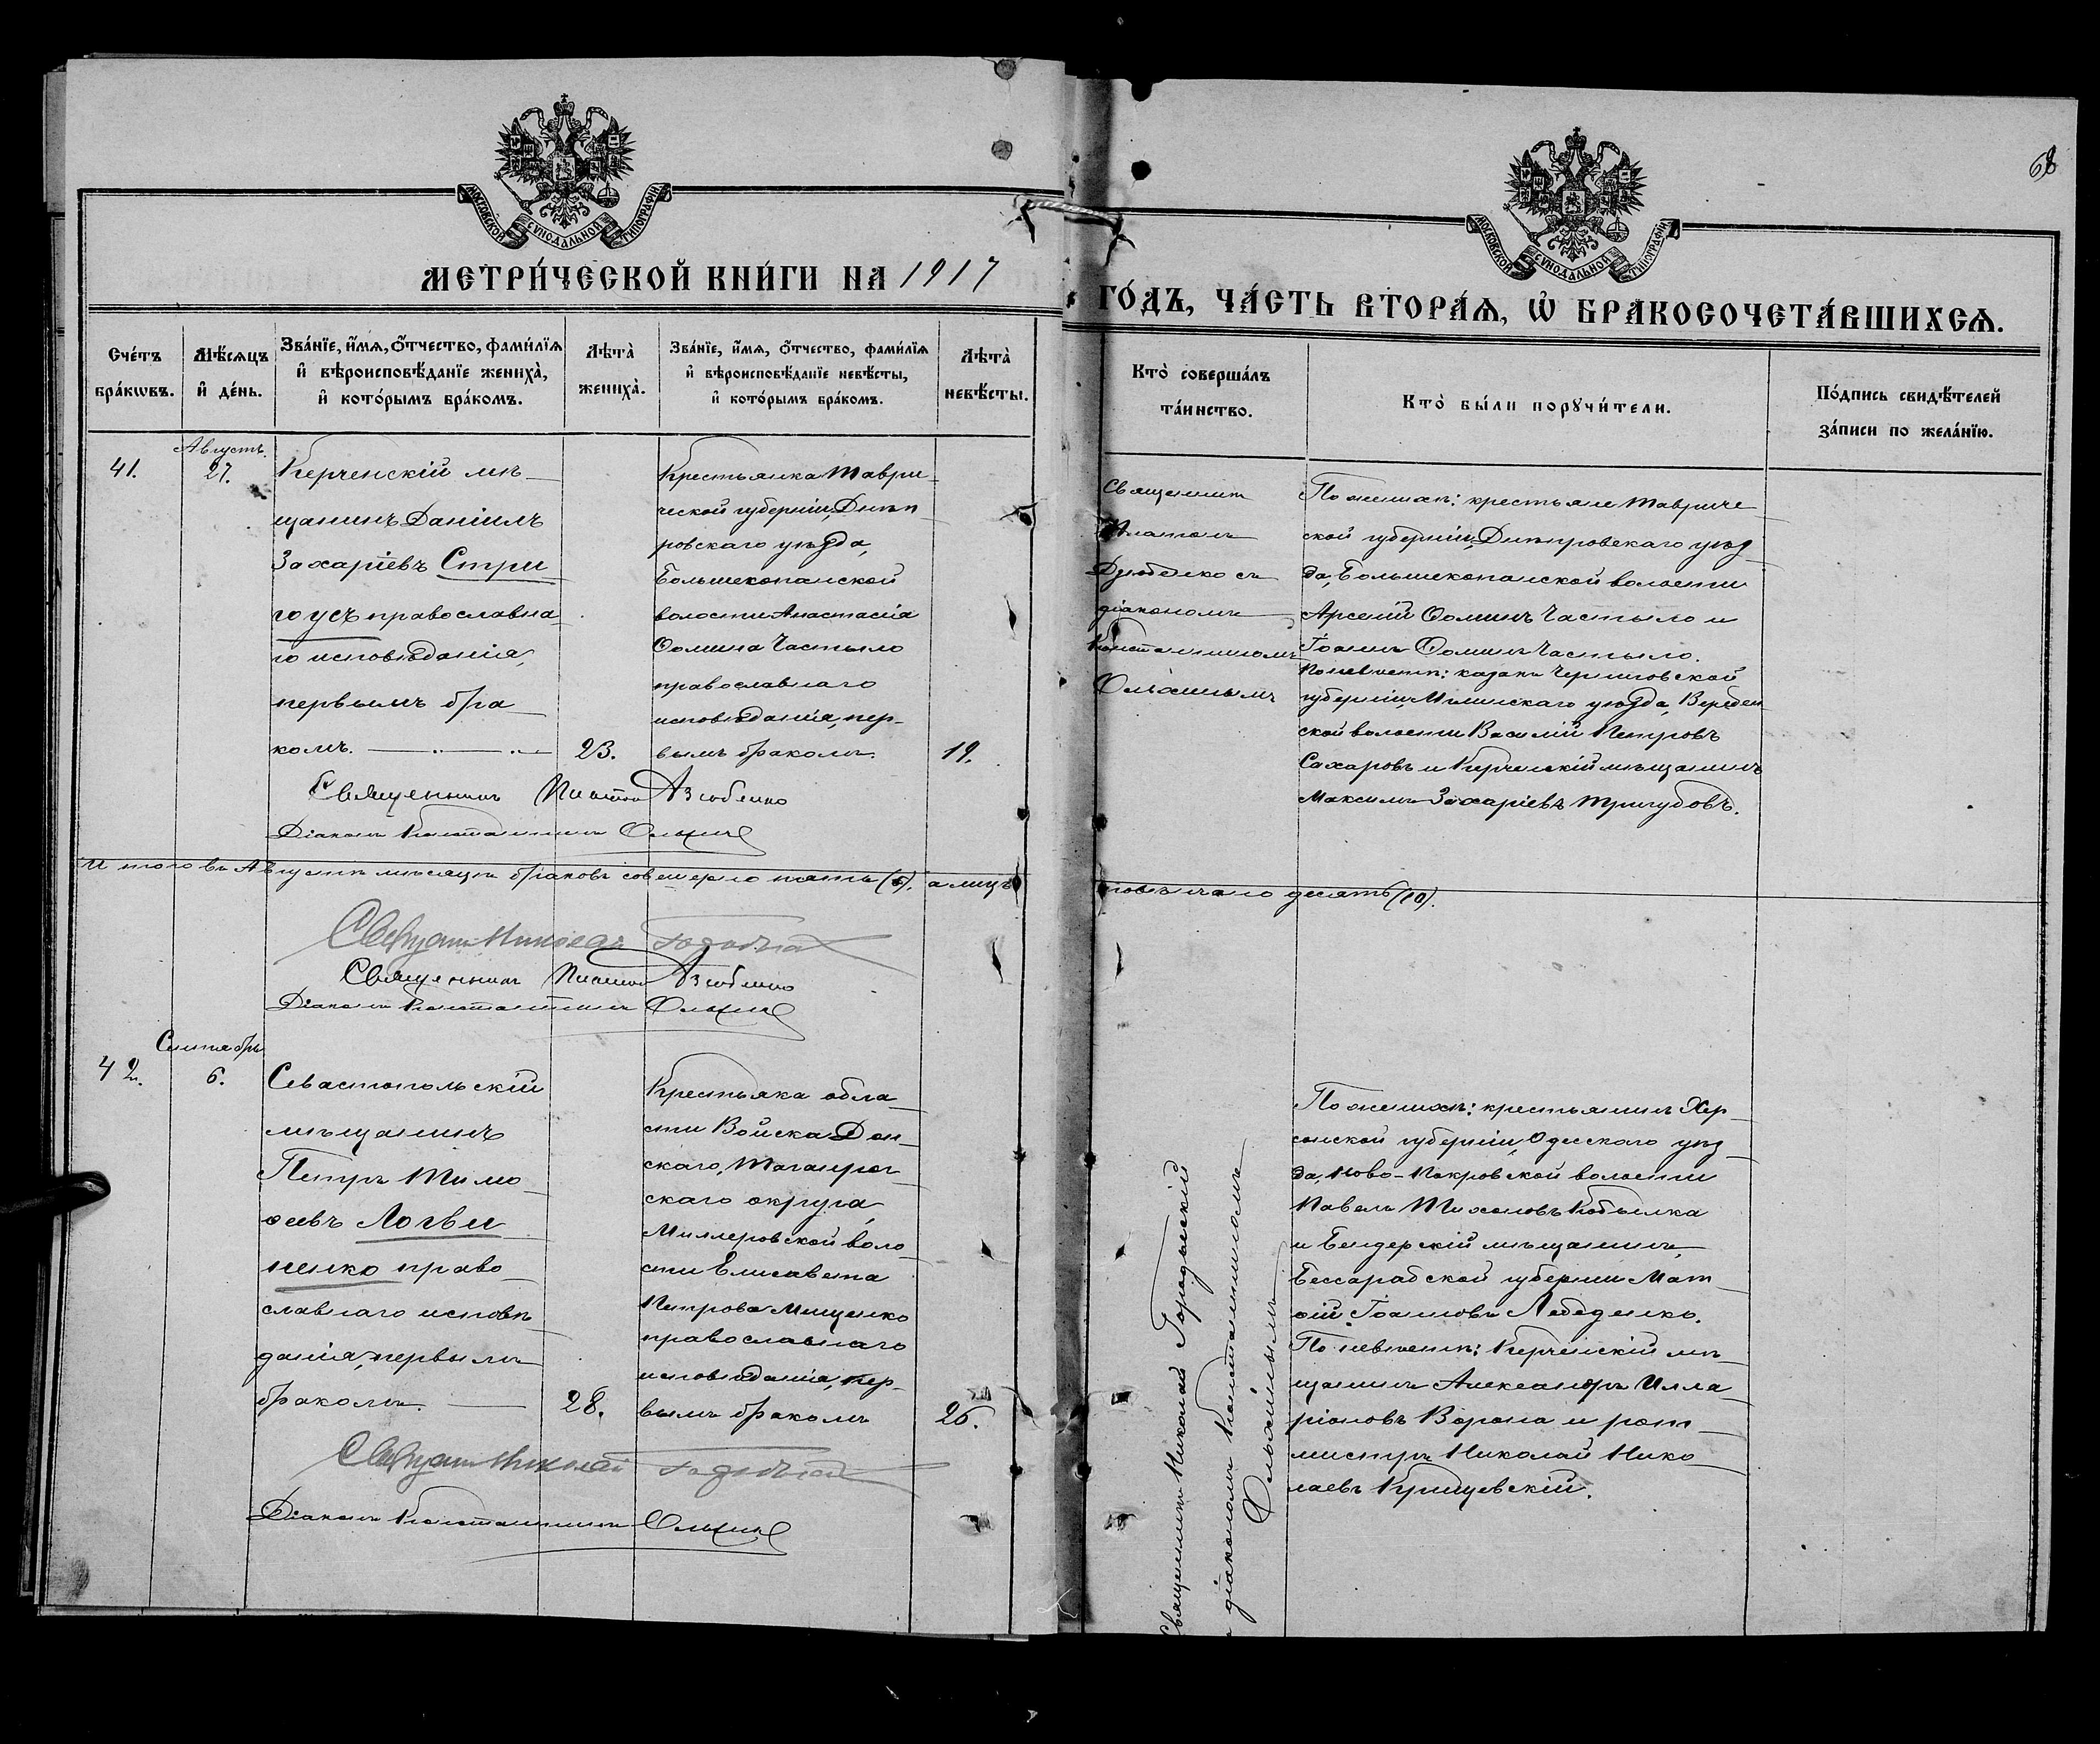 68
МОСКОВСКОЙ СѴНОДАЛЬНОЙ ТИПОГРАФІИ
МОСКОВСКОЙ СѴНОДАЛЬНОЙ ТИПОГРАФІИ
МЕТРИ́ЧЕСКОЙ КНИ́ГИ НА 1917
ГО́ДЪ, ЧА́СТЬ ВТОРА́Ѧ, Ѡ҆ БРАКОСОЧЕТА́ВШИХСѦ.
Сче́тъ
бра́кѡвъ.
Мѣ́сѧцъ
и҆ де́нь.
Зва́нїе, и҆́мѧ, ѻ҆́тчество, фами́лїѧ
и҆ вѣроисповѣ́данїе жениха̀,
и҆ кото́рымъ бра́комъ.
Лѣта̀
жениха̀.
Зва́нїе, и҆́мѧ, ѻ҆́тчество, фами́лїѧ
и҆ вѣроисповѣ́данїе невѣ́сты,
и҆ кото́рымъ бра́комъ.
Лѣта̀
невѣ́сты.
Кто̀ соверша́лъ
та́инство.
Кто̀ бы́ли порꙋчи́тели.
По́дпись свидѣ́телей
за́писи по жела́нїю.
41.
Августъ.
27.
Керченскій мѣ-
щанинъ Даніилъ
Захаріевъ Стри
гоусъ православна-
го исповѣданія,
первымъ бра
комъ.
23.
Крестьянка Таври-
ческой губерніи, Днѣп-
ровскаго уѣзда,
Большекопанской
волости Анастасія
Ѳомина Частыло
православнаго
исповѣданія, пер-
вымъ бракомъ.
19.
Священникъ
Платонъ
Дзюбенко съ
діакономъ
Константиномъ
Ольхинымъ
По женихѣ: крестьяне Тавриче-
ской губерніи, Днѣпровскаго уѣз-
да, Большекопанской волости
Арсеній Ѳоминъ Частыло и
Іоаннъ Ѳоминъ Частыло.
По невѣстѣ: казакъ Черниговской
губерніи, Мглинскаго уѣзда,
ской волости Василій Петровъ
Сахаровъ и Керченскій мѣщанинъ
Максимъ Захаріевъ Тригубовъ.
Священникъ Платонъ Дзюбенко
Діаконъ Константинъ Ольхинъ
И того въ Августѣ мѣсяцѣ браковъ совершено пять (5), а лицъ
повѣнчано десять (10).
Священникъ Николай
Священникъ Платонъ Дзюбенко
Діаконъ Константинъ Ольхинъ
42.
Сентябрь
6.
Севастопольскій
мѣщанинъ
Петръ Тимо-
ѳеевъ Логви
ненко право-
славнаго исповѣ-
данія, первымъ
бракомъ.
28.
Крестьянка обла-
сти Войска Дон-
скаго, Таганрог-
скаго округа,
Миллеровской воло-
сти Елисавета
Петрова Мищенко
православнаго
исповѣданія, пер-
вымъ бракомъ
26.
Священникъ Николай Городыскій
съ діакономъ Константиномъ
Ольхинымъ
По женихѣ: крестьянинъ Хер-
сонской губерніи, Одесскаго уѣз-
да, Ново-Покровской волости
Павелъ Тихоновъ Кобылка
и Бендерскій мѣщанинъ,
Бессарабской губерніи Мат-
ѳій Іоанновъ Лебеденко.
По невѣстѣ: Керченскій мѣ-
щанинъ Александръ Илла-
ріоновъ Ворона и рот-
мистръ Николай Нико-
лаевъ Крищевскій.
Священникъ Николай
Діаконъ Константинъ Ольхинъ